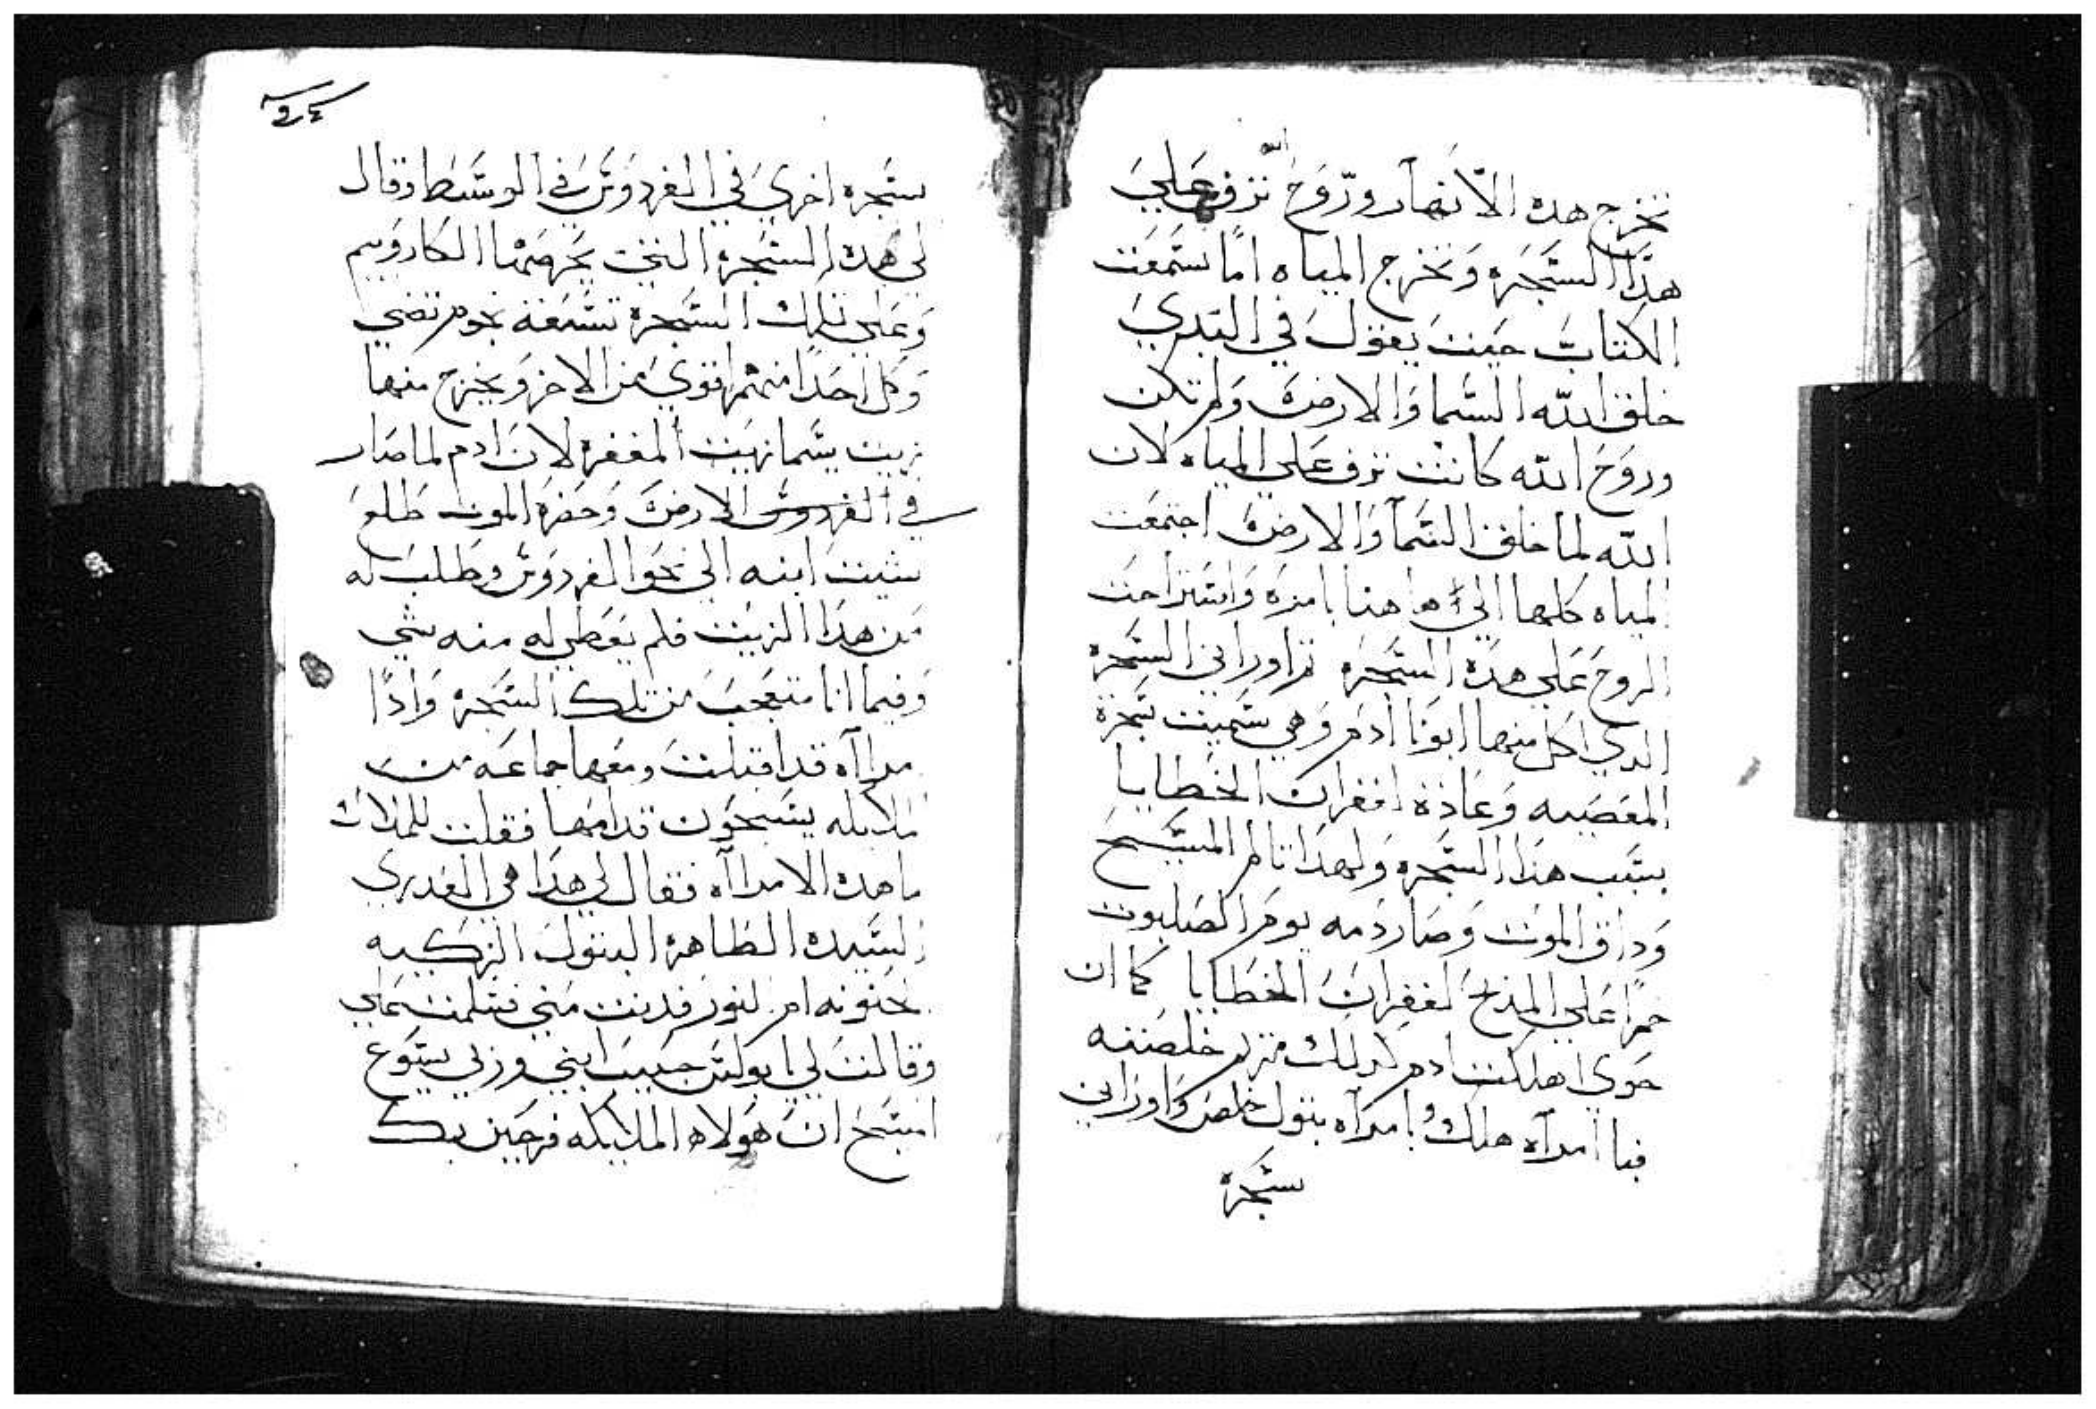 الله
تخرج هده الانهار وروح ترف علي
هدا الشجره وتخرج المياه اما سمعت
الكتاب حيث يقول في البدي
خلق الله السما والارض ولم تكن
وروح الله كانت ترف علي المياه لان
الله لما خلق السمآ والارض اجتمعت
المياه كلها الي ها هنا بامره واستراحت
الروح علي هده الشجره تم اوراني الشجره
الدي اكل منها ابونا ادم وهي سميت شجرة
المعصيه وعادة اغفران الخطايا
بسبب هدا الشجره ولهدا تالم المسيح
وداق الموت وصار دمه يوم الصلبوت
خمرا علي المدبح لغفران الخطايا كما ان
حوي اهلكت ادم كدلك مريم خلصته
فبا امرآه هلك وبامرآه بتول خلص واوراني
شجره
شجره اخري في الفردوس في الوسط وقال
لي هده الشجره التي يحرصها الكاروبيم
وعلي تلك الشجره تسعة نجوم تضي
وكل احدا منهم اقوي من الاخر ويخرج منها
زيت يسما زيت المغفره لان ادم لما صار
في الفردوس الارض وحضره الموت طلع
شيت ابنه الي نحو الفردوس وطلب له
من هدا الزيت فلم يعطي له منه شي
وفيما انا متعجب من تلك الشجره وادا
مراآه قد اقبلت ومعها جماعه من
الملايكه يسبحون قدامها فقلت للملاك
ما هده الامراآه فقال لي هدا هي العدري
السيده الطاهره البتول الزكيه
الحنونه ام النور فدنت مني فسلمت علي
وقالت لي يا بولس حبيب ابني وربي يسوع
المسيح ان هولاه الملايكه فرحين بك